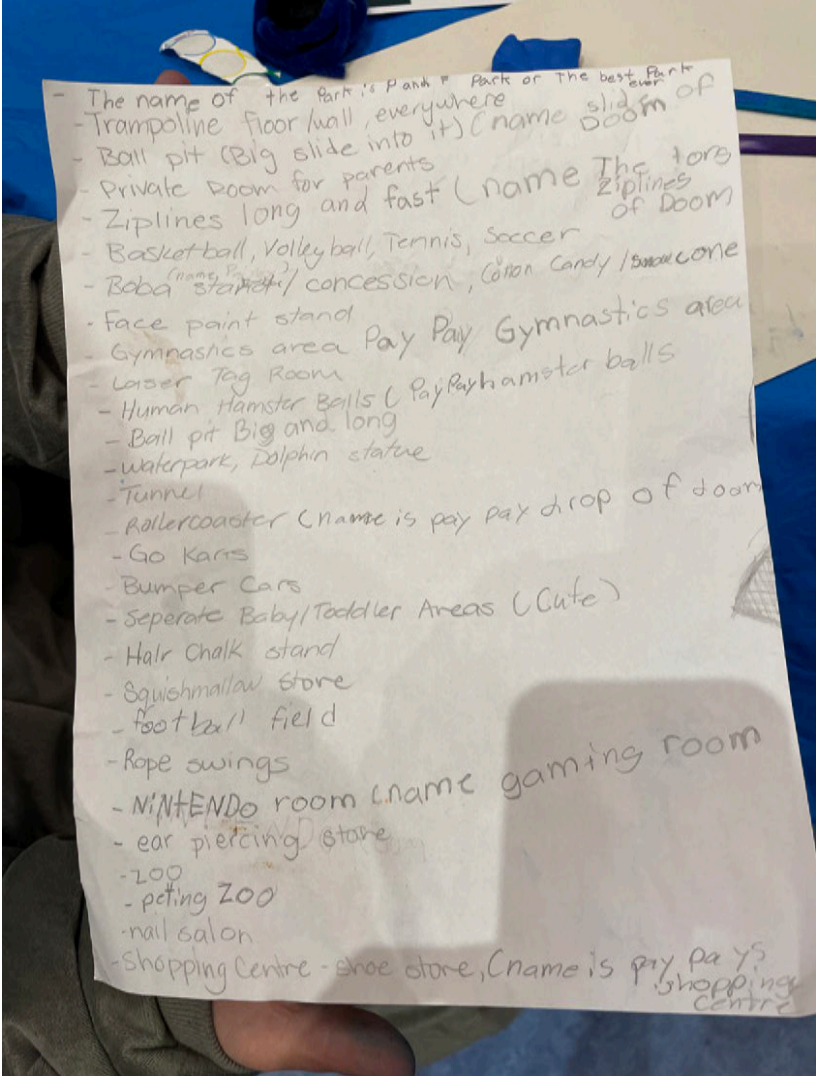 - The name of the Park is Pank P Park or The best Park ever
- Trampoline floor/wall, everywhere
- Ball pit (Big slide into it) (name slide of Doom
- Private Room for parents
- Ziplines long and fast (name The long Ziplines of Doom
- Basketball, Volleyball, Tennis, Soccer
- Boba stand / concession, Coton Candy / snowcone
- Face paint stand
- Gymnastics area Pay Pay Gymnastics area
- Laser Tag Room
- Human Hamster Balls ( PayPay hamster balls
- Ball pit Big and long
- Waterpark, Dolphin statue
- Tunnel
- Rollercoaster (name is pay pay drop of doom
- Go Karts
- Bumper Cars
- Seperate Baby/Toddler Areas (Cute)
- Hair Chalk stand
- Squishmallow store
- football field
- Rope swings
- NiNtENDO room (name gaming room
- ear piercing store
- zoo
- peting Zoo
- nail salon
- Shopping Centre - shoe store, (name is pay pays shopping centre